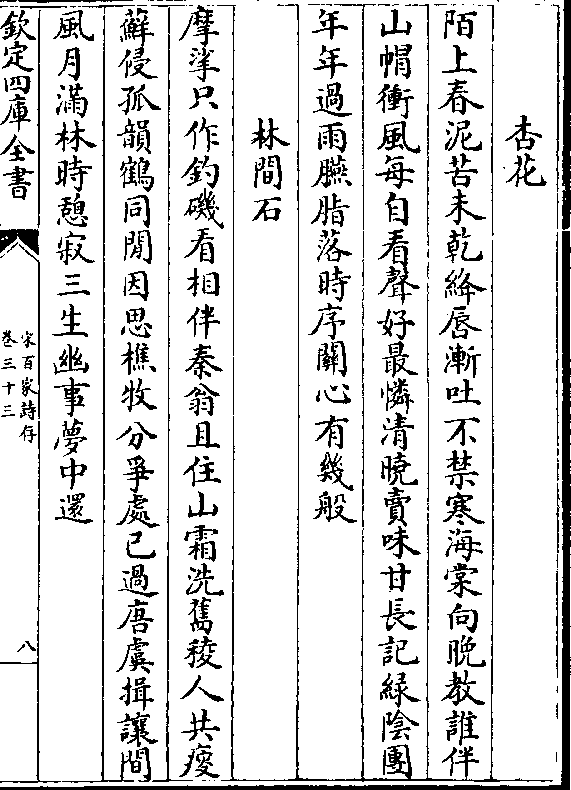 杏花
陌上春泥苦未乾絳唇漸吐不禁寒海棠向晚教誰伴
山帽衝風每自看聲好最憐清曉賣味甘長記緑陰團
年年過雨臙脂落時序關心有幾般
林間石
摩挲只作釣磯看相伴秦翁且住山霜洗舊稜人共瘦
蘚侵孤韻鶴同閒因思樵牧分爭處已過唐虞揖讓間
風月滿林時憩寂三生幽事夢中還
欽定四庫全書
宋百家詩存
卷三十三
八